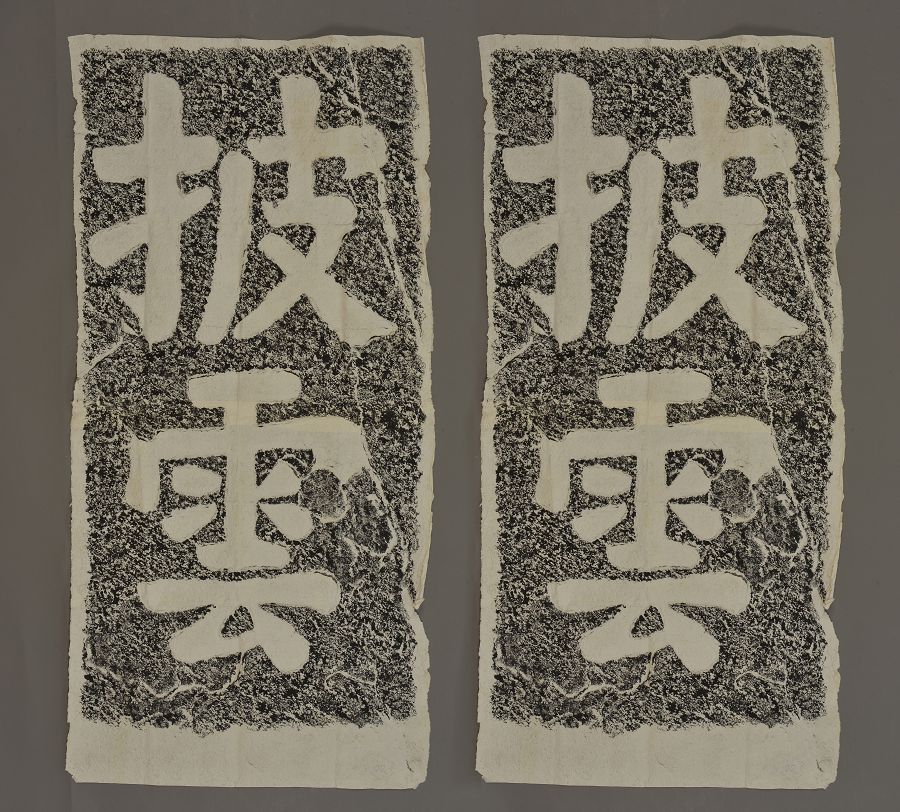 披
雲
披
雲